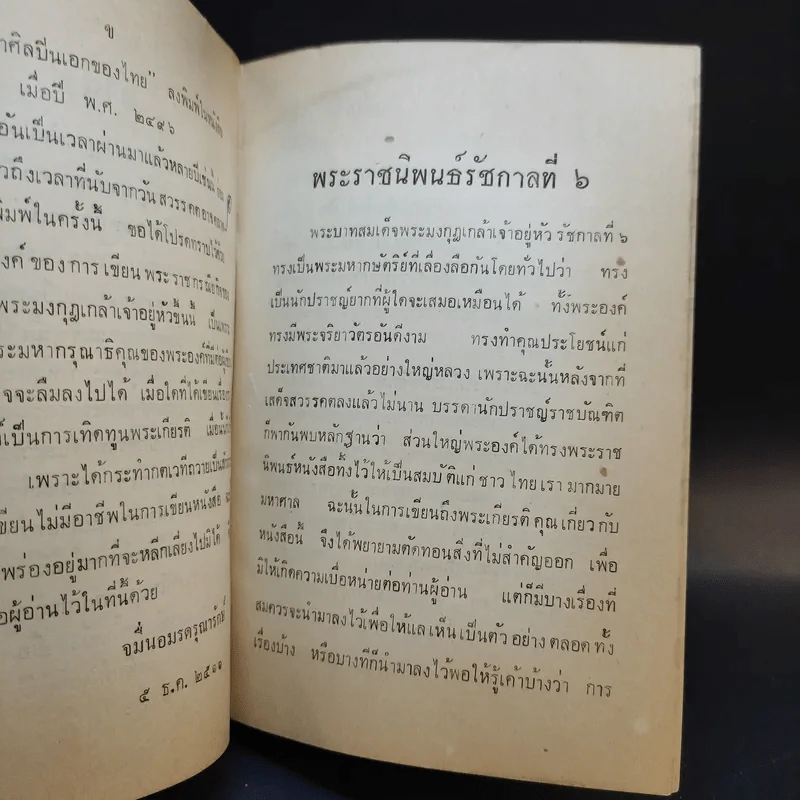 ข
ศิลปินเอกของไทย" ลงพิมพ์ในหนังสือ
เมื่อปี พ.ศ. ๒๔๙๖
อันเป็นเวลาผ่านมาแล้วหลายปีเช่นนี้
ถึงเวลาที่นับจากวัน สวรรคต
พิมพ์ในครั้งนี้ ขอได้โปรดทราบไว้ด้วย
องค์ ของ การ เขียน พระ ราช กรณียกิจของ
พระมงกุฎเกล้าเจ้าอยู่หัวขึ้นนี้ เป็นเพราะ
พระมหากรุณาธิคุณของพระองค์ที่มีต่อ
จจะลืมลงไปได้ เมื่อใดที่ได้เขียนเรื่อง
เป็นการเทิดทูนพระเกียรติ
เพราะได้กระทำกตเวทีถวายเป็น
เขียน ไม่มีอาชีพในการเขียนหนังสือ
พร่องอยู่มากที่จะหลีกเลี่ยงไปมิได้
อผู้อ่านไว้ในที่นี้ด้วย
จมื่นอมรดรุณารักษ์
๕ ธ.ค. ๒๕๑๑
พระราชนิพนธ์รัชกาลที่ ๖
พระบาทสมเด็จพระมงกุฎเกล้าเจ้าอยู่หัว รัชกาลที่ ๖
ทรงเป็นพระมหากษัตริย์ที่เลื่องลือกันโดยทั่วไปว่า ทรง
เป็นนักปราชญ์ยากที่ผู้ใดจะเสมอเหมือนได้ ทั้งพระองค์
ทรงมีพระจริยาวัตรอันดีงาม ทรงทำคุณประโยชน์แก่
ประเทศชาติมาแล้วอย่างใหญ่หลวง เพราะฉะนั้นหลังจากที่
เสด็จสวรรคตลงแล้วไม่นาน บรรดานักปราชญ์ราชบัณฑิต
ก็พากันพบหลักฐานว่า ส่วนใหญ่พระองค์ได้ทรงพระราช
นิพนธ์หนังสือทิ้งไว้ให้เป็นสมบัติแก่ ชาว ไทย เรา มากมาย
มหาศาล ฉะนั้นในการเขียนถึงพระเกียรติ คุณ เกี่ยว กับ
หนังสือนี้ จึงได้พยายามตัดทอนสิ่งที่ไม่สำคัญออก เพื่อ
มิให้เกิดความเบื่อหน่ายต่อท่านผู้อ่าน แต่ก็มีบางเรื่องที่
สมควรจะนำมาลงไว้เพื่อให้แล เห็น เป็น ตัว อย่าง ตลอด ทั้ง
เรื่องบ้าง หรือบางทีก็นำมาลงไว้พอให้รู้เค้าบ้างว่า การ